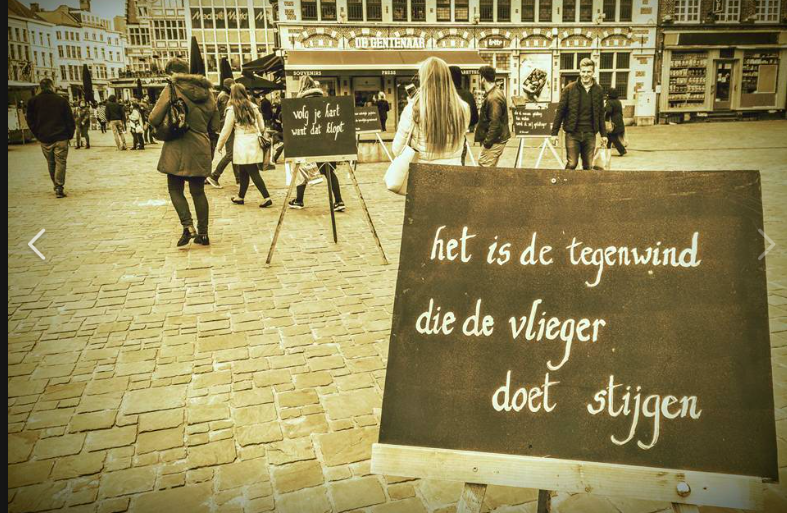 DE GENTENAAR
volg je hart
want dat klopt
het is de tegenwind
die de vlieger
doet stijgen